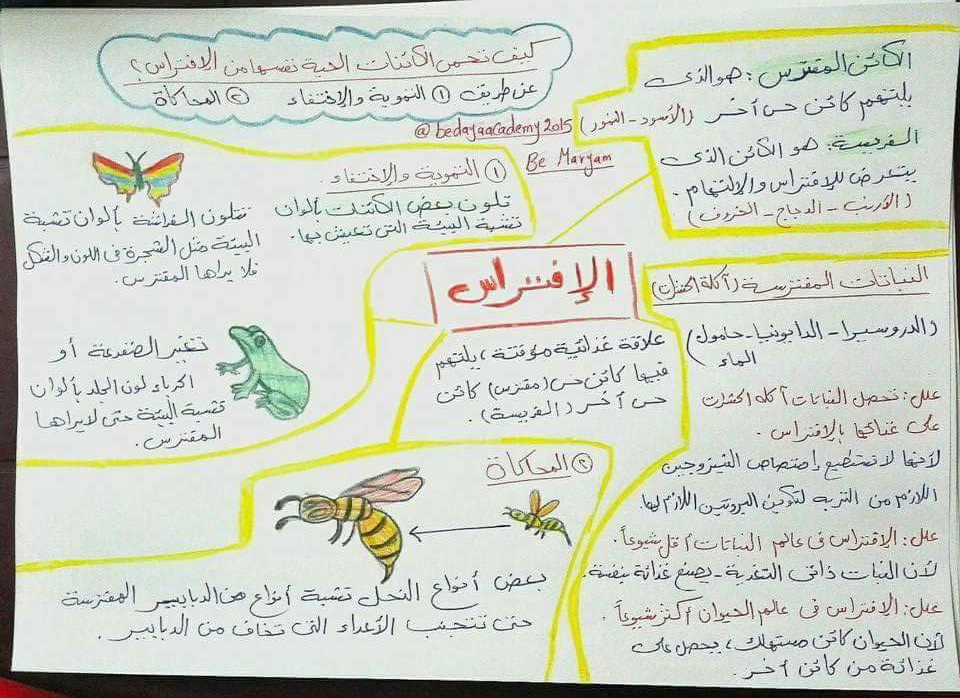 كيف تحمى الكائنات الحية نفسها من الافتراس؟
عن طريق ① التموية والاختفاء ② المحاكاة
@bedayaacademy2015
Be Maryam
الكائن المفترس: هو الذى
يلتهم كائن حى أخر (الأسود - النمور)
الفريسة: هو الكائن الذى
يتعرض للإفتراس والالتهام.
(الأرنب - الدجاج - الخروف)
① التموية والاختفاء.
تلون بعض الكائنات بألوان
تشبة البيئة التى تعيش بها.
تتلون الفراشة بألوان تشبة
البيئة مثل الشجرة فى اللون والشكل
فلا يراها المفترس.
تغير الضفدعة أو
الحرباء لون الجلد بألوان
تشبة البيئة حتى لا يراها
المفترس.
الإفتراس
علاقة غذائية مؤقتة، يلتهم
فيها كائن حى (مفترس) كائن
حى أخر (الفريسة).
النباتات المفترسة (أكلة الحشرات)
(الدروسيرا - الدايونيا - حامول
الماء)
علل: تحصل النباتات أكله الحشرات
على غذائها بالإفتراس.
لأنها لا تستطيع إمتصاص النيتروجين
اللازم من التربه لتكوين البروتين اللازم لها.
علل: الإفتراس فى عالم النباتات أقل شيوعاً.
لأن النبات ذاتى التغذية - يصنع غذائة بنفسة.
علل: الإفتراس فى عالم الحيوان أكثر شيوعاً.
لأن الحيوان كائن مستهلك، يحصل على
غذائة من كائن أخر.
② المحاكاة
بعض أنواع النحل تشبة أنواع من الدبابير المفترسة
حتى تتجنب الأعداء التى تخاف من الدبابير.